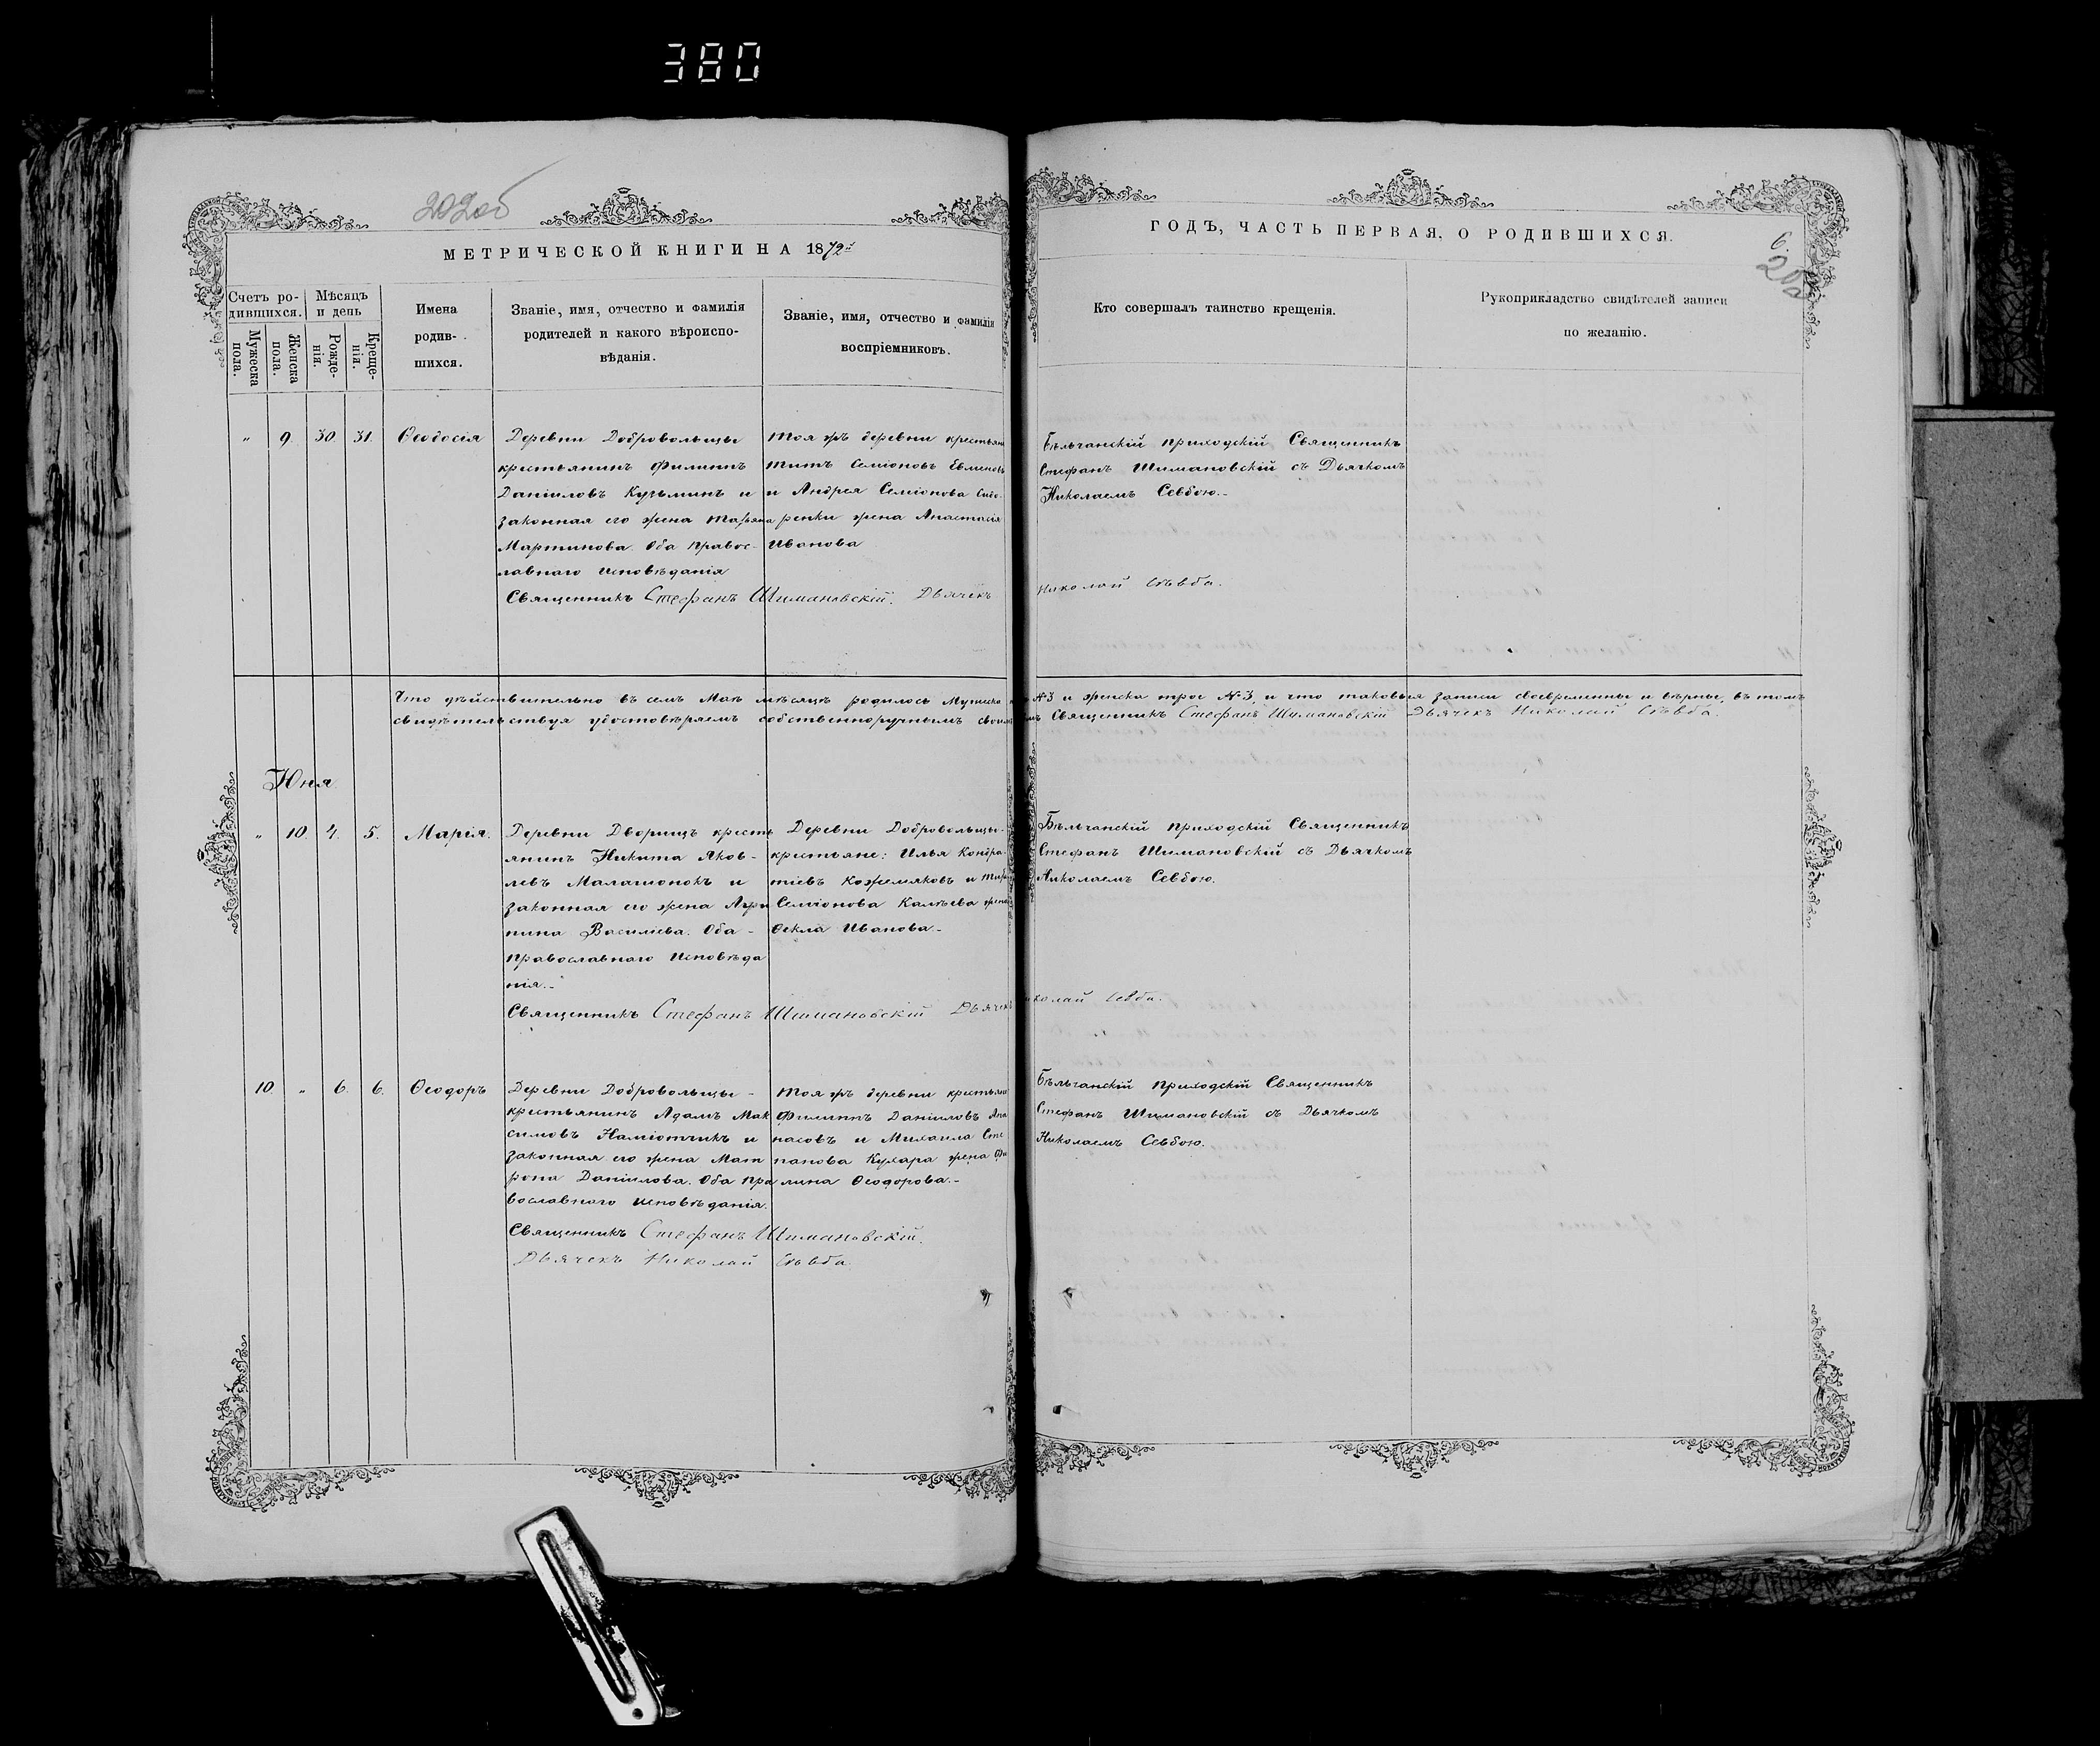 380
202об
МЕТРИЧЕСКОЙ КНИГИ НА 1872й
ГОДЪ, ЧАСТЬ ПЕРВАЯ, О РОДИВШИХСЯ.
6.
Счетъ ро-
дившихся.
Мужеска
пола.
Женска
пола.
Мѣсяцъ
и день
Рожде-
нія.
Креще-
нія.
Имена
родив-
шихся.
Званіе, имя, отчество и фамилія
родителей и какого вѣроиспо-
вѣданія.
Званіе, имя, отчество и фамилія
воспріемниковъ.
Кто совершалъ таинство крещенія.
Рукоприкладство свидѣтелей записи
по желанію.
„ 9. 30. 31. Ѳеодосія
Деревни Добровольцы
крестьянинъ Филиппъ
Даніиловъ Кузьминъ и
законная его жена Татьяна
Мартинова. Оба Правос-
лавнаго исповѣданія
Тоя жъ деревни крестьян
Титъ Семіоновъ Евменовъ
и Андрея Семіонова Сидо-
ренки жена Анастасія
Иванова
Бѣльчанскій приходскій Священникъ
Стефанъ Шимановскій съ Дьячкомъ
Николаемъ Севбою.-
Священникъ Стефанъ Шимановскій. Дьячекъ Николай Сѣвба.
Что дѣйствительно въ семъ Маѣ мѣсяцѣ родилось Мужеска №3 и женска трое №3, и что таковыя записи своевременны и вѣрны, въ томъ
свидѣтельствуя удостовѣряемъ собственноручнымъ своимъ Священникъ Стефанъ Шимановскій Дьячекъ Николай Сѣвба.
Юня
„ 10. 4. 5. Марія.
Деревни Дворищъ кресть
янинъ Никита Яков-
левъ Малашонокъ и
законная его жена Агри
пина Василіева. Оба -
Православнаго Исповѣда
нія.-
Деревни Добровольцы-
крестьяне: Илья Кондра-
тіевъ Кожемяковъ и
Семіонова Калѣева жена
Ѳекла Иванова-
Бѣльчанскій приходскій Священникъ
Стефанъ Шимановскій съ Дьячкомъ
Николаемъ Севбою.
Священникъ Стефанъ Шимановскій Дьячекъ Николай Севба.
10. „ 6. 6. Ѳеодоръ
Деревни Добровольцы -
крестьянинъ Адамъ Мак
симовъ Наміотчикъ и
законная его жена Мат
рона Даніилова. Оба Пра
вославнаго исповѣданія.
Тоя жъ деревни крестьяне
Филиппъ Даніиловъ Апа
насовъ и Михаила Сте
панова Кухара жена
лина Ѳеодорова.-
Бѣльчанскій Приходскій Священникъ
Стефанъ Шимановскій съ Дьячкомъ
Николаемъ Севбою.
Священникъ Стефанъ Шимановскій.
Дьячекъ Николай Сѣвба.